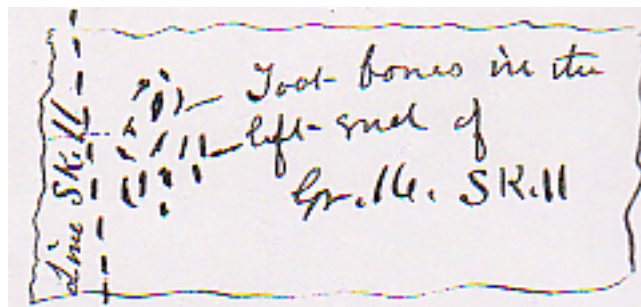 Line SK.11
Foot-bones in the
left-end of
Gr.16. SK.11